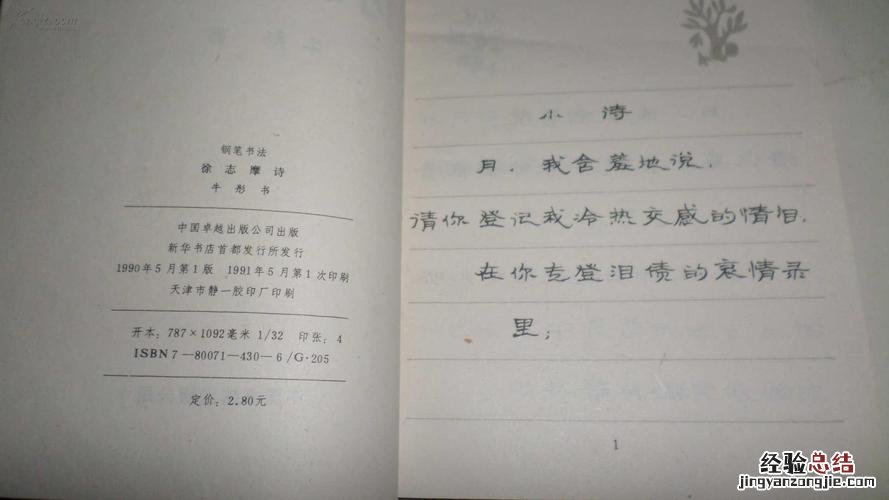 钢笔书法
徐志摩诗
牛彤书
中国卓越出版公司出版
新华书店首都发行所发行
1990年5月第1版 1991年5月第1次印刷
天津市静一胶印厂印刷
开本：787×1092毫米 1/32 印张：4
ISBN7—80071—430—6/G·205
定价：2.80元
小诗
月，我含羞地说，
请你登记我冷热交感的情泪，
在你专登泪债的哀情录
里；
1
经验总结
jingyanzongjie.com